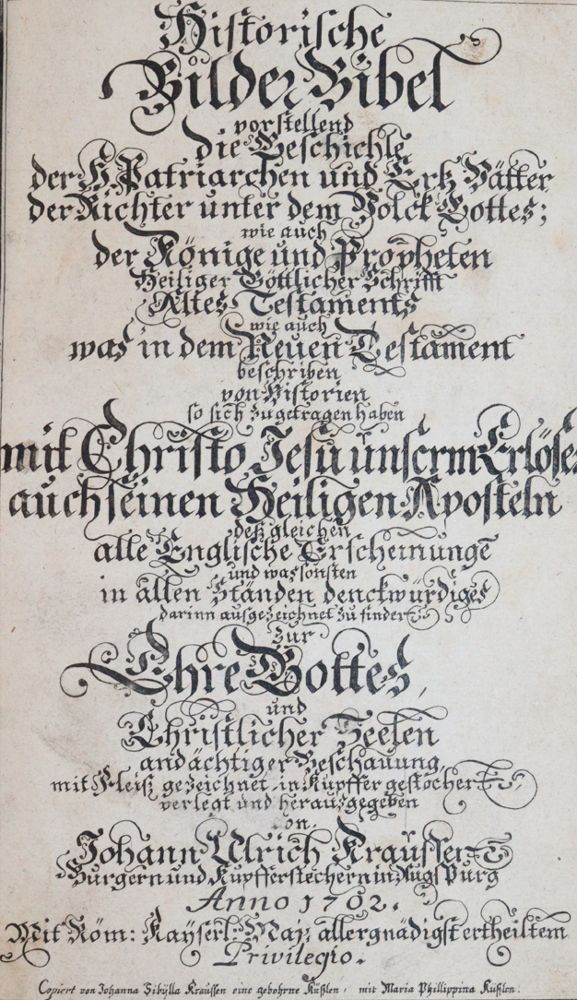 Historische
Bilder Bibel
vorstellend
die Geschichte
der H. Patriarchen und Ertz Vätter
der Richter unter dem Volck Gottes;
wie auch
der Könige und Propheten
Heiliger Göttlicher Schrifft
Altes Testaments
wie auch
was in dem Neuen Testament
beschriben
von Historien
so sich zugetragen haben
mit Christo Jesu unserm Erlöser
auch seinen Heiligen Aposteln
deßgleichen
alle Englische Erscheinungē
und was sonsten
in allen Ständen denckwürdiges
darinn ausgezeichnet zu finden
zur
Ehre Gottes,
und
Christlicher Seelen
andächtiger Beschauung
mit Fleiß gezeichnet, in Kupffer gestochen
verlegt und herausgegeben
von
Johann Ulrich Kraussen
Burgern und Kupfferstechern in Augspurg
Anno 1702.
Mit Röm: Kayserl: Maj: allergnädigst ertheiltem
Privilegio.
Copiert von Johanna Sibÿlla Kraussen eine gebohrne Küßlen, mit Maria Phillippina Küßlen.